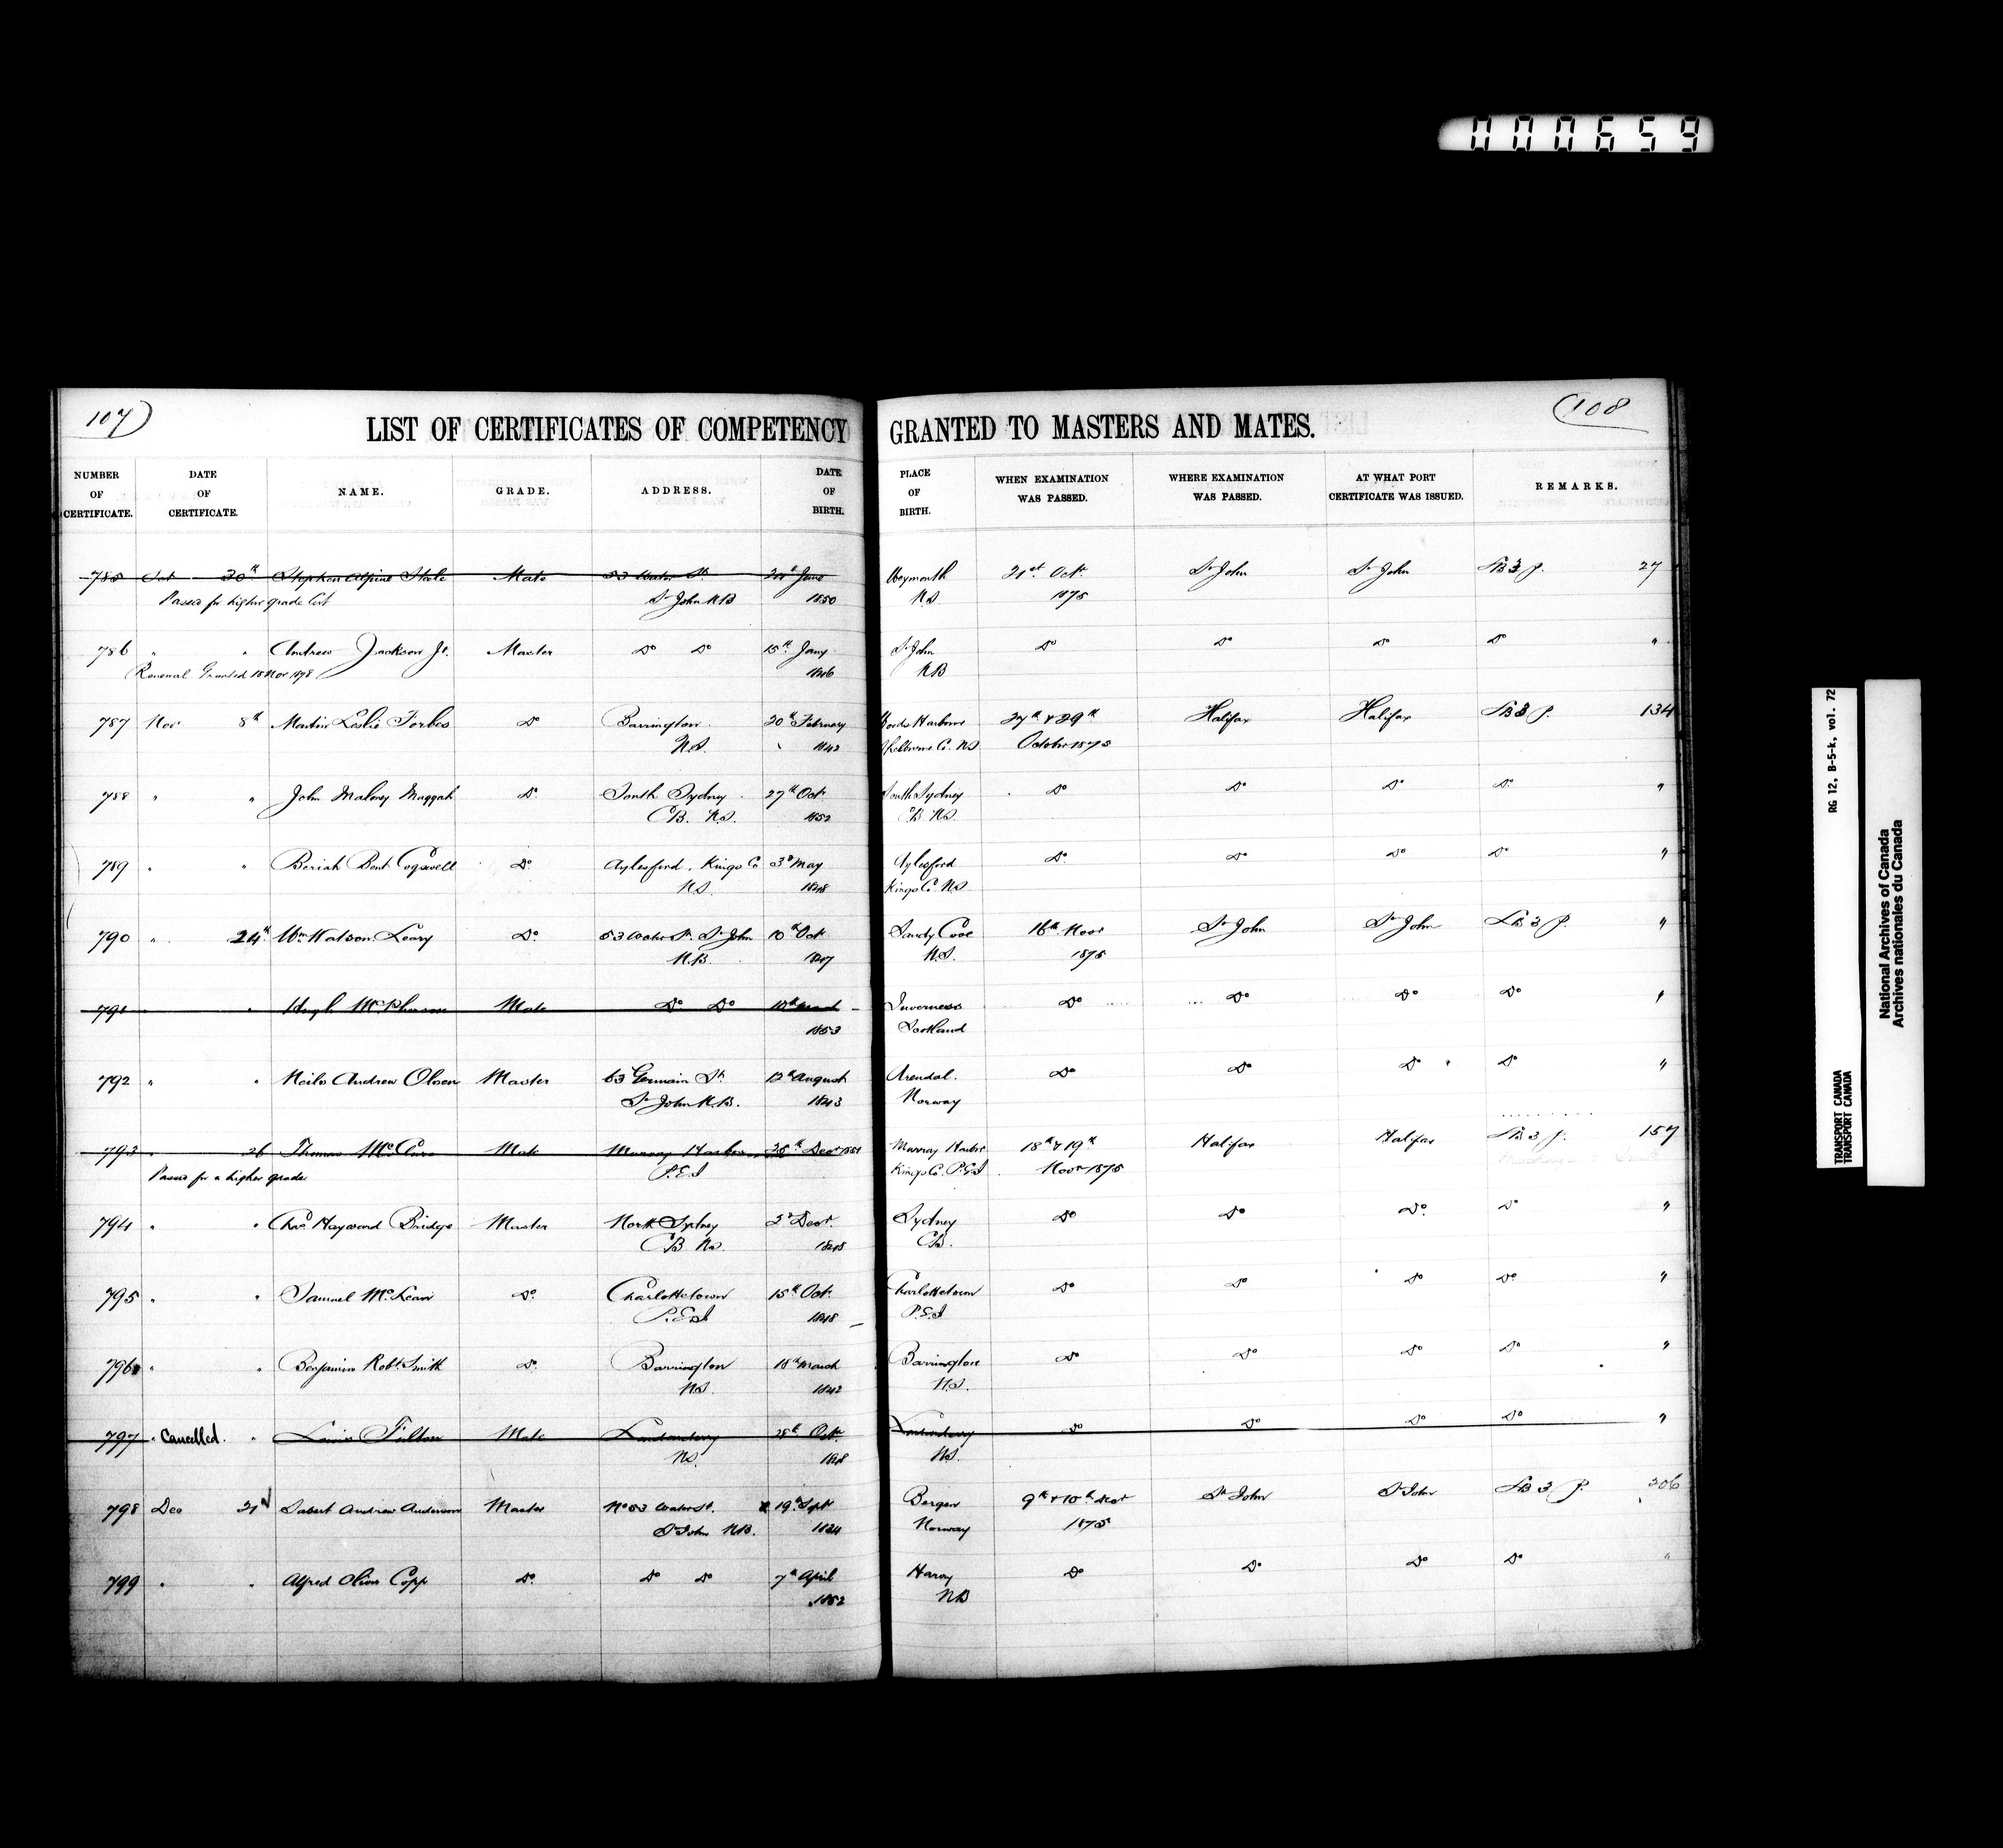 000659
107
108
LIST OF CERTIFICATES OF COMPETENCY GRANTED TO MASTERS AND MATES.
NUMBER OF CERTIFICATE. DATE OF CERTIFICATE. NAME. GRADE. ADDRESS. DATE OF BIRTH. PLACE OF BIRTH. WHEN EXAMINATION WAS PASSED. WHERE EXAMINATION WAS PASSED. AT WHAT PORT CERTIFICATE WAS ISSUED. REMARKS.
785 Oct 30th Stephen Alpine Steele Mate 53 Water St. June Weymouth 21st Oct. St John St John 27
Passed for higher grade Cert St John N.B 1850 N.S. 1875
786 " " Andrew Jackson Jr. Master Do Do 15th Jany St John Do Do Do Do "
Renewal Granted 18 Nov 1878 1846 N B
787 Nov 8th Martin Leslie Forbes Do Barrington 20th February Woods Harbour 27th & 29th Halifax Halifax 134
N.S. 1842 Shelburne Co. N.S October 1875
788 " " John Maloney Muggah Do South Sydney 27th Oct South Sydney Do Do Do Do "
C.B. N.S. 1852 C.B. N.S.
789 " " Beriah Bent Cogswell Do Aylesford, Kings Co 3d May Aylesford Do Do Do Do "
N.S. 1848 Kings Co. N.S
790 " 24th Wm Watson Leary Do 53 Water St. St John 10th Oct Sandy Cove 16th Novr St John St John "
N.B. 1847 N.S. 1875
791 " Hugh McPherson Mate Do Do Inverness Do Do Do Do "
1853 Scotland
792 " " Neils Andrew Olsen Master 63 Germain St. 12th August Arendal. Do Do Do Do "
St John N.B. 1843 Norway
793 " 26 Thomas McClure Mate Murray Harbour Decr 1851 Murray Harbor 18th & 19th Halifax Halifax 157
Passed for a higher grade P.E.I Kings Co. P.E.I Novr 1875
794 " " Chas Hayward Bridge Master North Sydney Decr. Sydney Do Do Do Do "
C B N.S. 1848 C.B.
795 " " Samuel McLean Do Charlottetown 15th Oct. Charlottetown Do Do Do Do "
P.E.I 1848 P.E.I
796 " " Benjamin Robt. Smith Do Barrington 18th March Barrington Do Do Do Do "
N.S. 1842 N.S.
797 " Cancelled. " Fulton Mate Londonderry 28th Oct. Londonderry Do Do Do Do "
N.S. 1848 N.S.
798 Dec 21 Andrew Anderson Master No 53 Water St. 19th Sept Bergen 9th & 10th Decr St John St John 306
St John N.B. 1824 Norway 1875
799 " " Alfred Oliver Copp Do Do Do 7th April Harvy Do Do Do Do "
1852 N B
RG 12, B-5-k, vol. 72
TRANSPORT CANADA
TRANSPORT CANADA
National Archives of Canada
Archives nationales du Canada